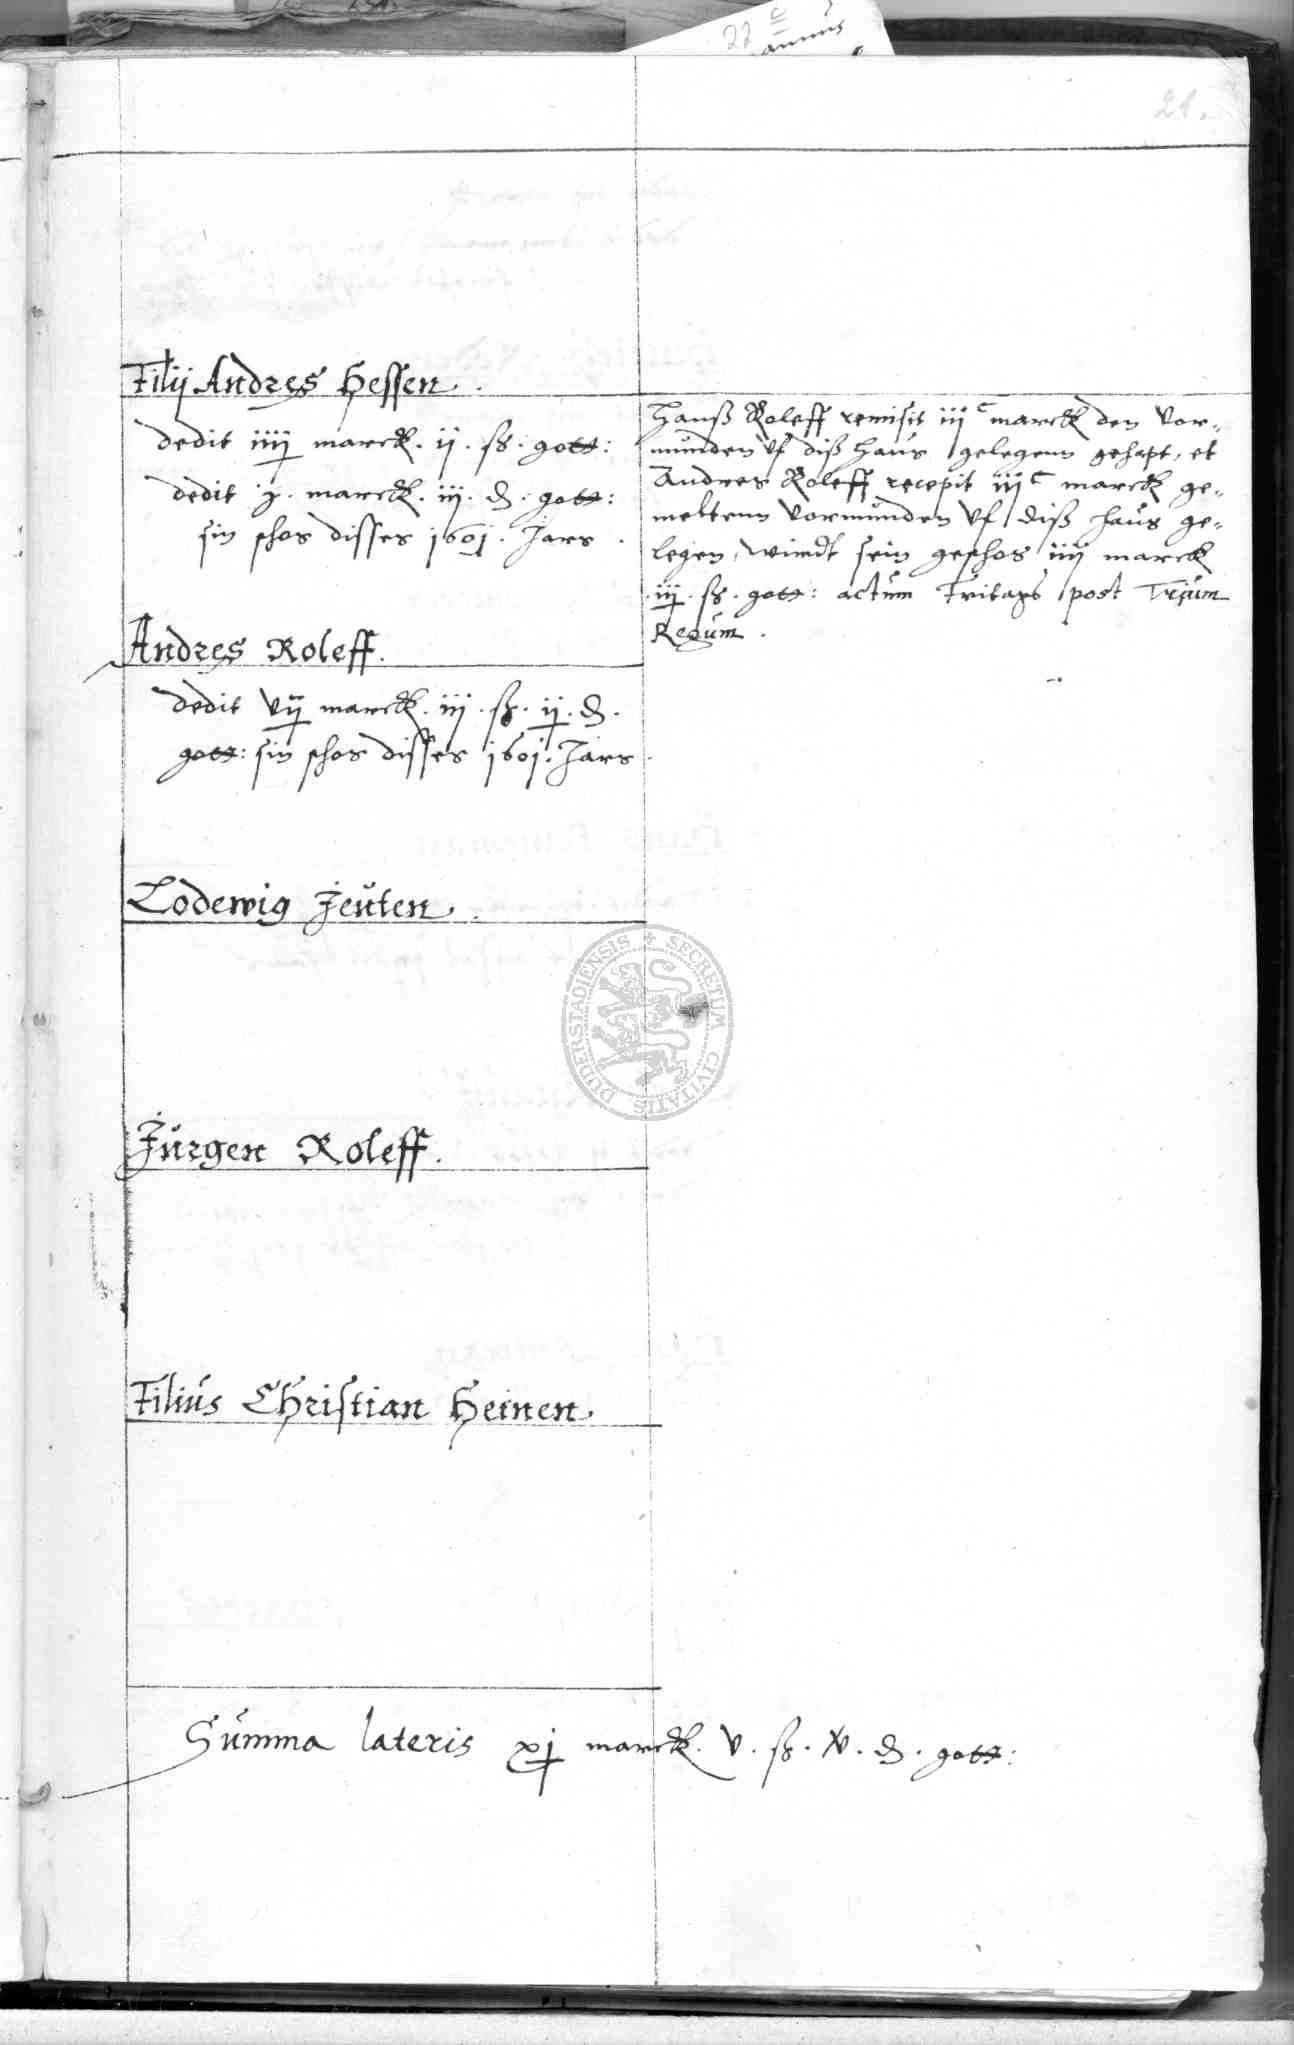 22 c
annus
21.
Filij Andres Hessen.
dedit iiij marck. ij. ß. gott:
dedit j. marck. iij. d. gott:
sin schos disses 1601. Jars.
Hanß Roleff remisit iij c marck den vor-
munden uf diß haus gelegenn gehapt, et
Andres Roleff recepit iij c marck ge-
meltenn vormunden uf diß haus ge-
legen, wirdt sein geschos iiij marck
iij. ß. gott: actum Fritags post Trium
Regum.
Andres Roleff.
dedit vij marck. iij. ß. ij. d.
gott: sin schos disses 1601. Jars
Lodewig Jeuten.
SECRETUM CIVITATIS DUDERSTADIENSIS
Jurgen Roleff.
Filius Christian Heinen.
Summa lateris xj marck. v. ß. v. d. gott: